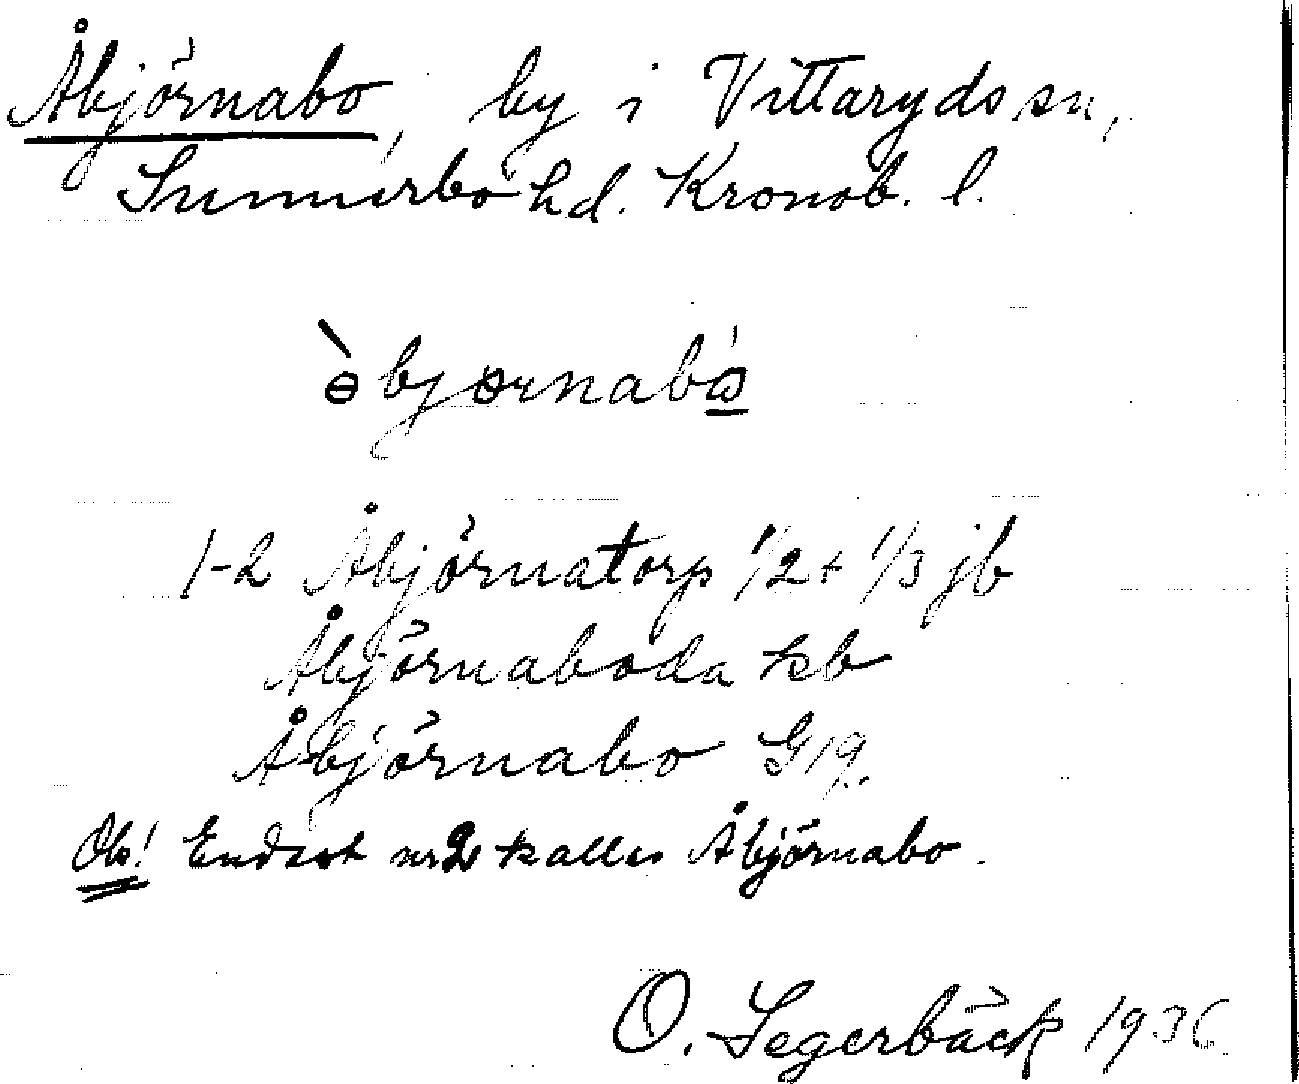 Åbjörnabo, by i Vittaryds sn,
Sunnerbo hd. Kronob. l.
1-2 Åbjörnatorp 1/2 + 1/3 jb
Åbjörnaboda kb
Åbjörnabo G 19.
Obs! Endast nr 2 kallas Åbjörnabo.
O. Segerbäck 1936